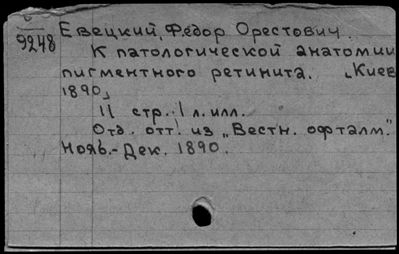 9248
Евецкий, Федор Орестович.
К патологической анатомии
пигментного ретинита. „Киев
1890„
11 стр. 1 л. илл.
Отд. отт. из „Вестн. офталм."
Нояб.-Дек. 1890.